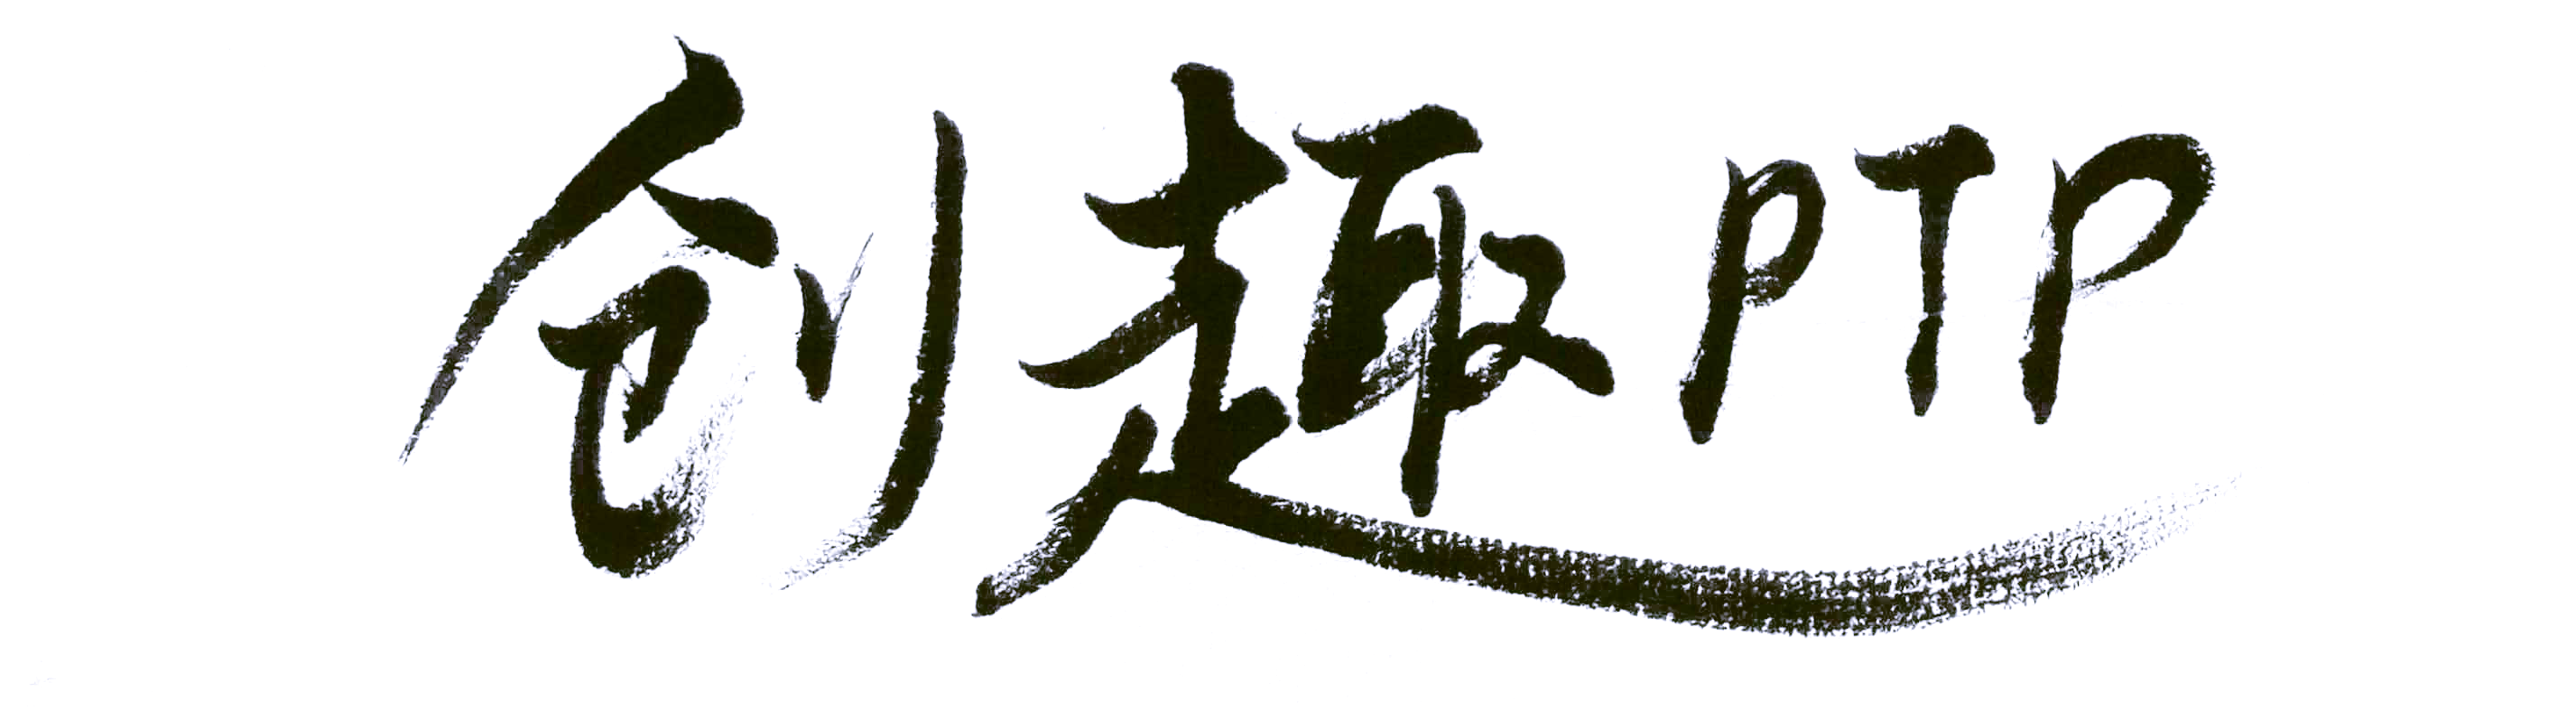 创趣PTP